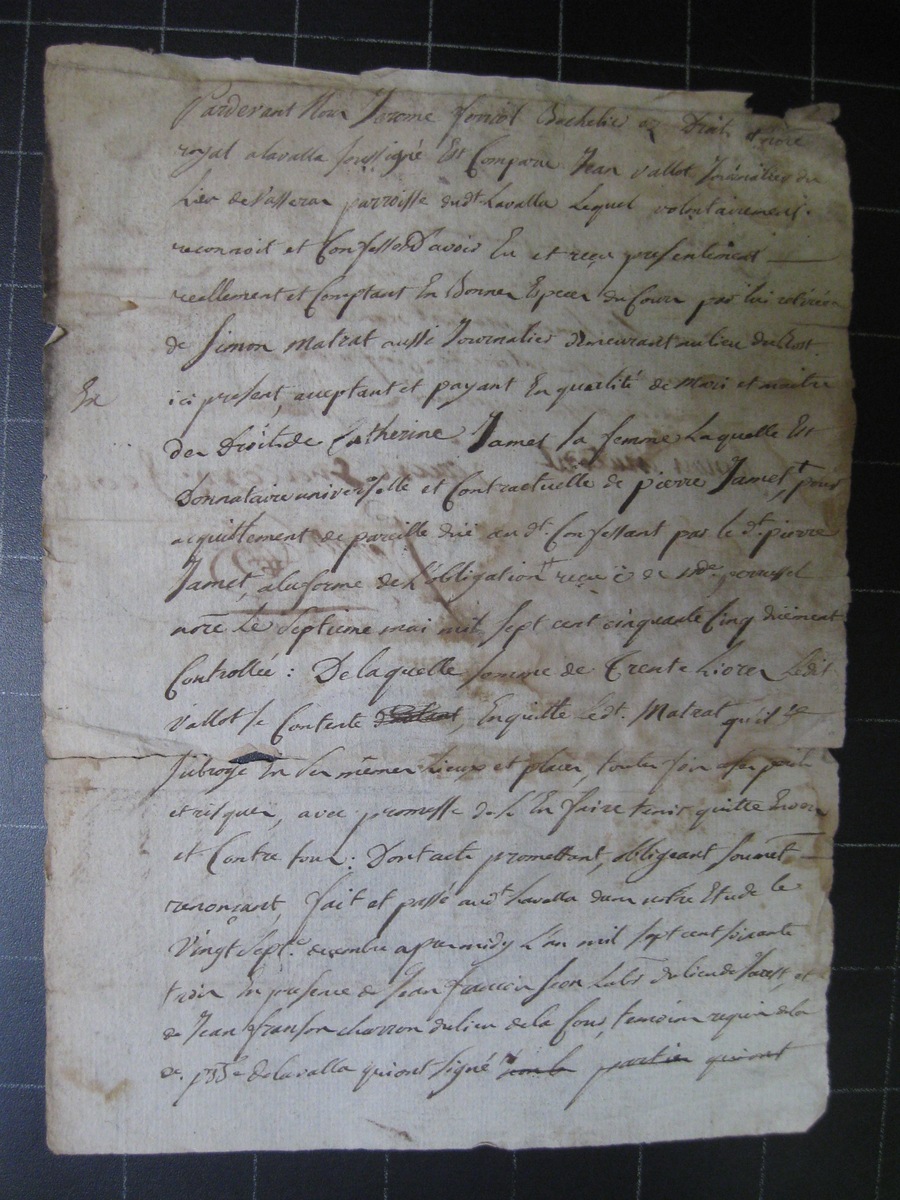 Pardevant Nous Jerome Bachelier en Droit et nore
royal a lavalla soussigné Est Comparu Jean vallot Journalier du
lieu de parroisse dudt. Lavalla Lequel volontairement
reconnoit et Confesse D'avoir Eu et reçu presentement
reellement et Comptant En Bonnes Especes du Cours par lui retirées
de Simon matrat aussi Journalier demeurant au lieu du
ici present, acceptant et payant En qualité de mari et maitre
Ex
des Droits de Catherine Jamet sa femme Laquelle Est
Donnataire universelle et Contractuelle de pierre Jamet, pour
acquittement de pareille due audt. Confessant par le dt. pierre
Jamet, a la forme de L'obligation reçue
nore Le Septieme mai mil sept cent cinquante Cinq duement
Controllée : De laquelle somme de Trente Livres Ledit
vallot se Contente, En quitte Ledt. Matrat qu'il
subroge En ses mêmes Lieux et places, toutes fois a ses perils
et risques, avec promesse de L'En faire tenir quitte Envers
et Contre tous : Dont acte promettant, obligeant, soumet
renonçant, fait et passé audt. Lavalla dans notre Etude le
Vingt Sept. decembre apres midy L'an mil sept cent soixante
trois En presence de Jean Labr. du lieu de et
de Jean charron du lieu de la temoins requis de la
de. psse. de lavalla qui ont signé parties qui ont